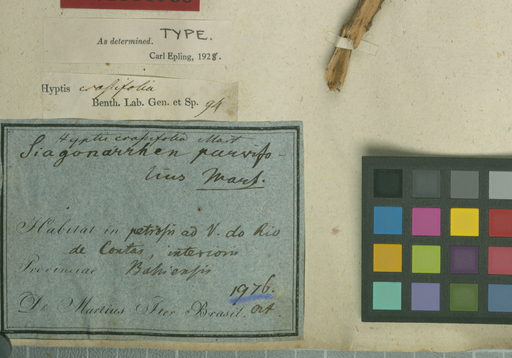 As determined. TYPE.
Carl Epling, 1928.
Hyptis crassifolia
Benth. Lab. Gen. et Sp. 94
Hyptis crassifolia Mart
Siagonarrhen parvifo-
lius Mart.
Habitat in petrosis ad V. do Rio
de Contas, interioris
Provinciae Bahiensis
1976.
De Martius Iter Brasil.